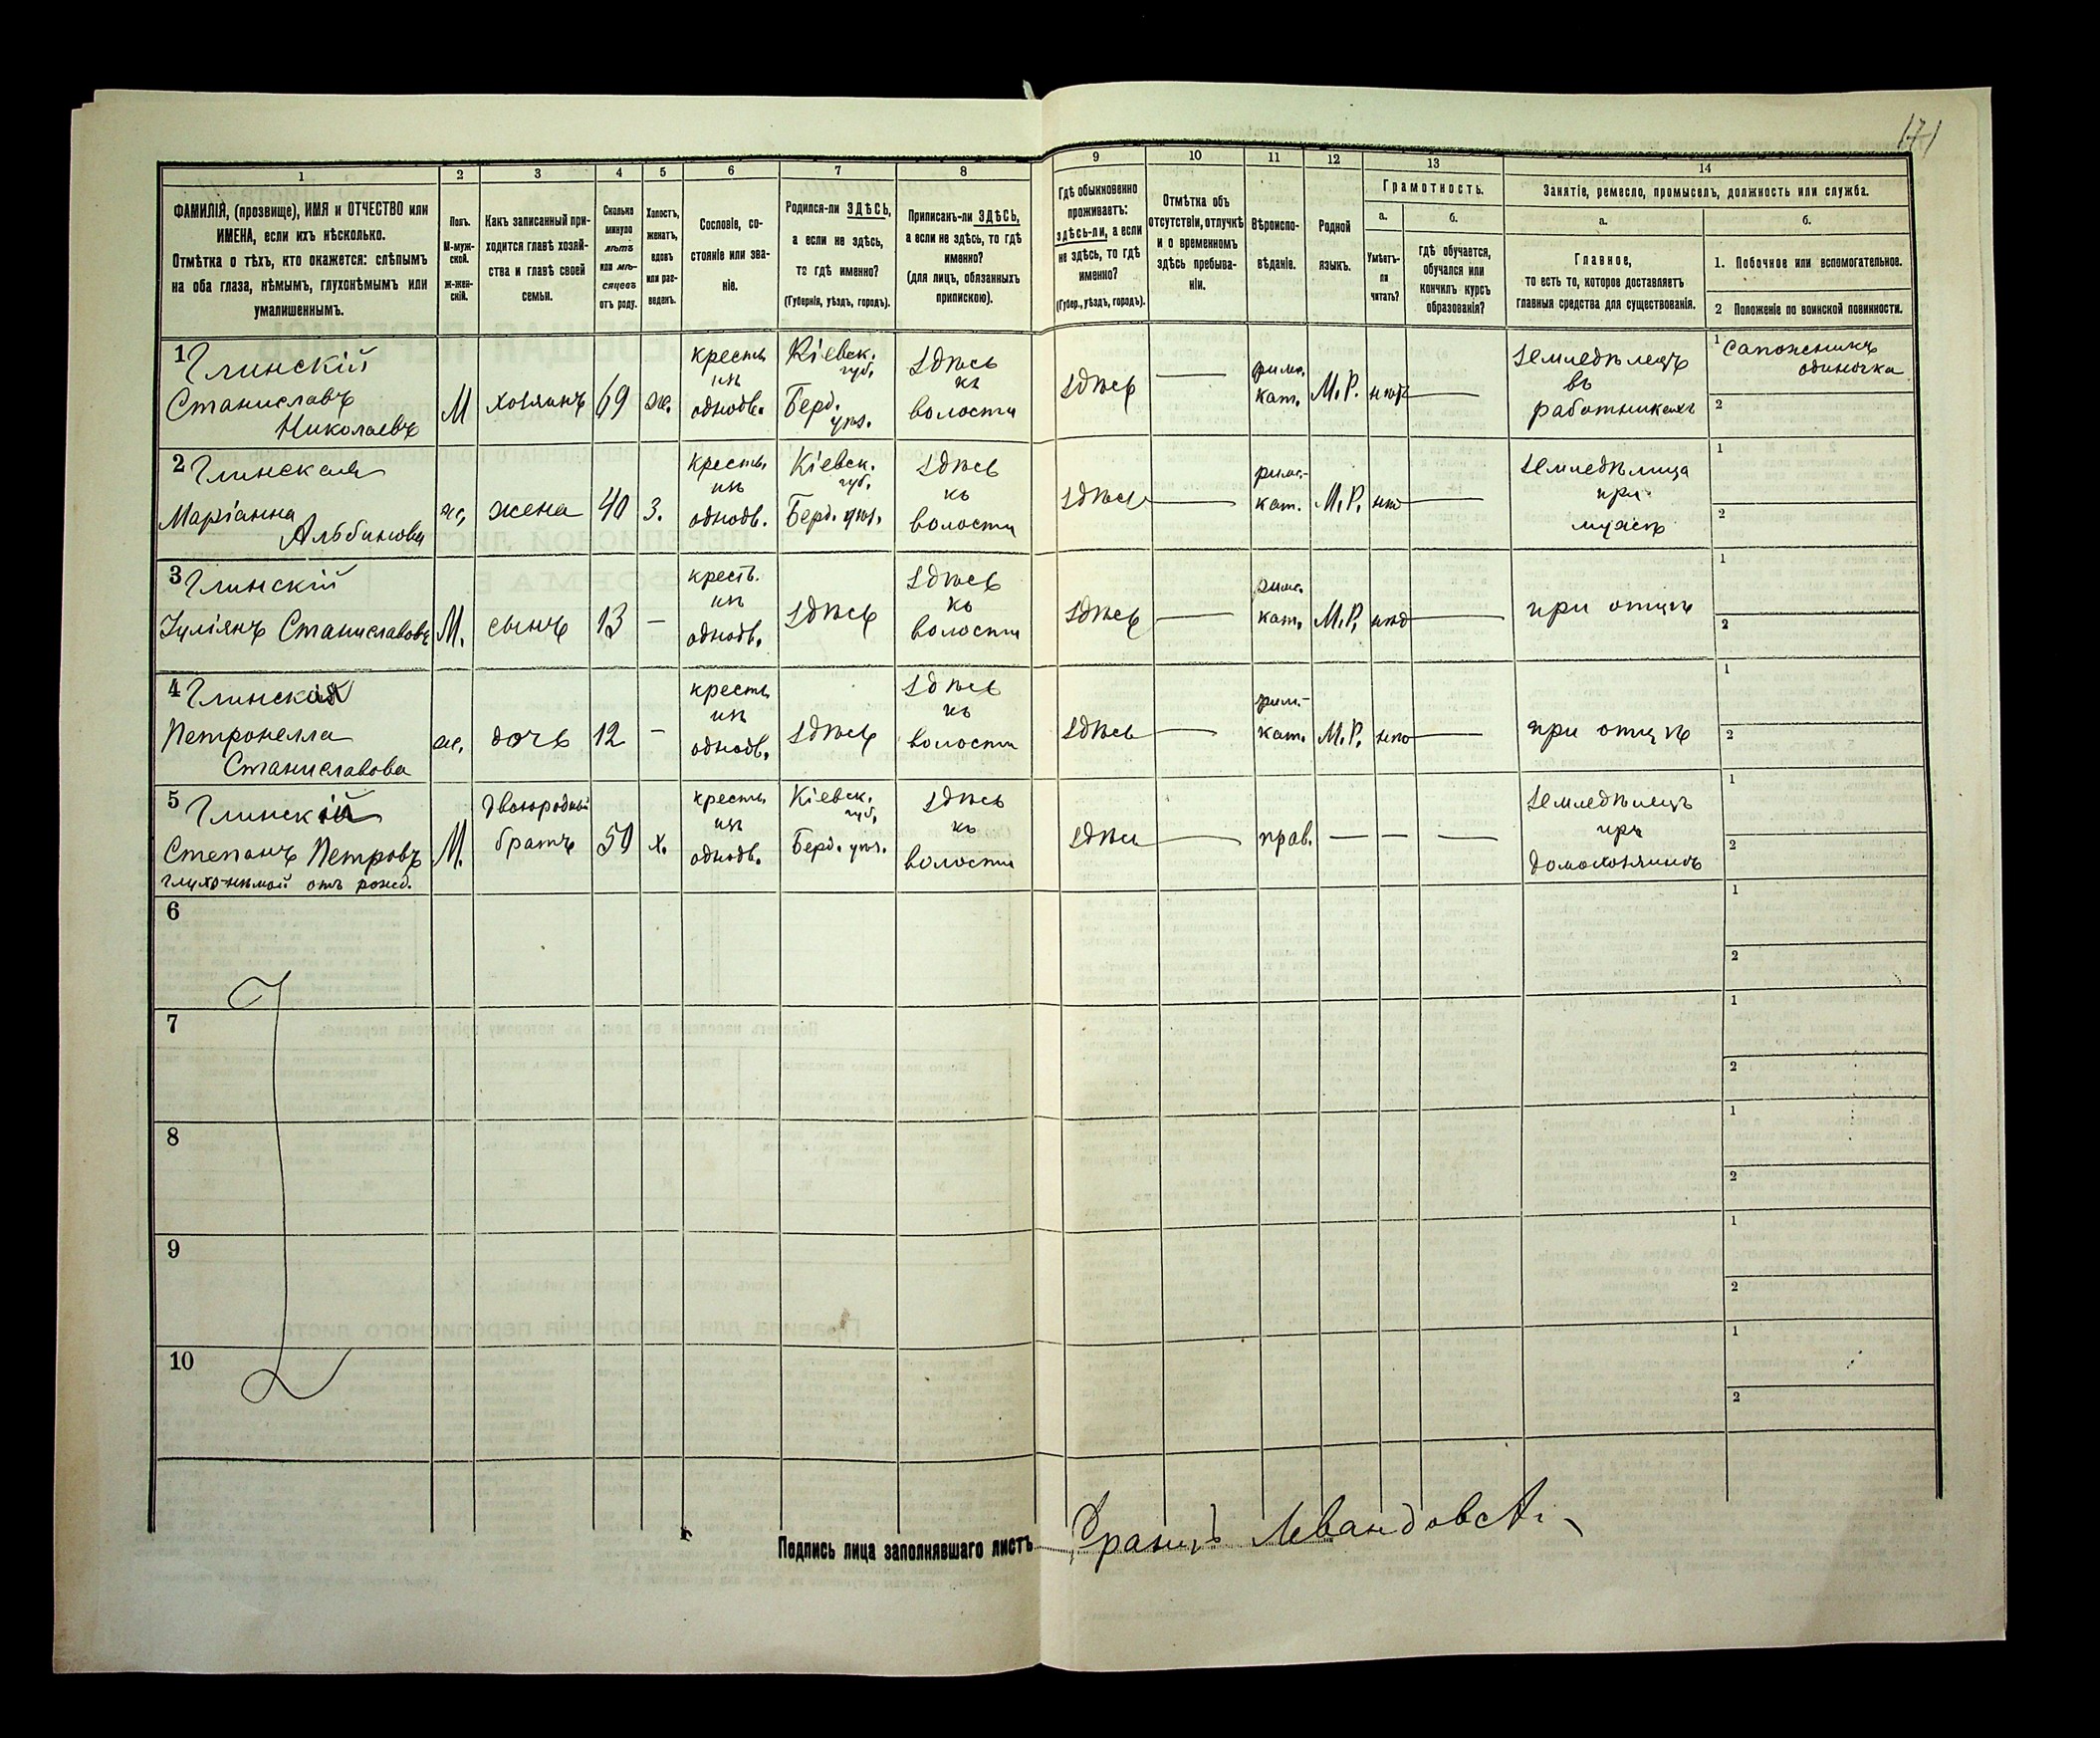 171
1 2 3 4 5 6 7 8 9 10 11 12 13 14
ФАМИЛІЯ, (прозвище), ИМЯ и ОТЧЕСТВО или
ИМЕНА, если ихъ нѣсколько.
Отмѣтка о тѣхъ, кто окажется: слѣпымъ
на оба глаза, нѣмымъ, глухонѣмымъ или
умалишеннымъ.
Полъ.
М-муж-
ской.
Ж-жен-
скій.
Какъ записанный при-
ходится главѣ хозяй-
ства и главѣ своей
семьи.
Сколько
минуло
лѣтъ
или мѣ-
сяцевъ
отъ роду.
Холостъ,
женатъ,
вдовъ
или раз-
веденъ.
Сословіе, со-
стояніе или зва-
ніе.
Родился-ли ЗДѢСЬ,
а если не здѣсь,
то гдѣ именно?
(Губернія, уѣздъ, городъ).
Приписанъ-ли ЗДѢСЬ,
а если не здѣсь, то гдѣ
именно?
(для лицъ, обязанныхъ
припискою).
Гдѣ обыкновенно
проживаетъ:
здѣсь-ли, а если
не здѣсь, то гдѣ
именно?
(Губер., уѣздъ, городъ).
Отмѣтка объ
отсутствіи, отлучкѣ
и о временномъ
здѣсь пребыва-
ніи.
Вѣроиспо-
вѣданіе.
Родной
языкъ.
Грамотность.
а.
Умѣетъ-
ли
читать?
б.
Гдѣ обучается,
обучался или
кончилъ курсъ
образованія?
Занятіе, ремесло, промыселъ, должность или служба.
а.
Главное,
то есть то, которое доставляетъ
главныя средства для существованія.
б.
1. Побочное или вспомогательное.
2 Положеніе по воинской повинности.
1 Глинскій
Станиславъ
Николаевъ
М
хозяинъ
69
ж.
кресть.
изъ
однодв.
Кіевск.
губ.
Берд.
уѣз.
здѣсь
къ
волости
здѣсь
—
рим.
кат.
М.Р.
нѣтъ
—
земледѣлецъ
въ
работникахъ
1 сапожникъ
одиночка
2
2 Глинская
Маріанна
Альбинова
ж.
жена
40
з.
кресть.
изъ
однодв.
Кіевск.
губ.
Берд. уѣз.
здѣсь
къ
волости
здѣсь
—
рим.-
кат.
М.Р.
нѣт
—
земледѣлица
при
мужѣ
1
2
3 Глинскій
Іуліянъ Станиславовъ
М.
сынъ
13
—
кресть.
изъ
однодв.
здѣсь
здѣсь
къ
волости
здѣсь
—
рим.
кат.
М.Р.
нѣт
—
при отцѣ
1
2
4 Глинская
Петронелла
Станиславова
ж.
дочь
12
—
кресть
изъ
однодв.
здѣсь
здѣсь
къ
волости
здѣсь
—
рим.-
кат.
М.Р.
нѣт
—
при отцѣ
1
2
5 Глинскій
Степанъ Петровъ
глухо-нѣмой отъ рожд.
М.
двоюродный
братъ
50
х.
кресть
изъ
однодв.
Кіевск.
губ.
Берд. уѣз.
здѣсь
къ
волости
здѣсь
—
прав.
— — —
земледѣлецъ
при
домохозяинѣ
1
2
6
1
2
7
1
2
8
1
2
9
1
2
10
1
2
Подпись лица заполнявшаго листъ Францъ Левандовскі